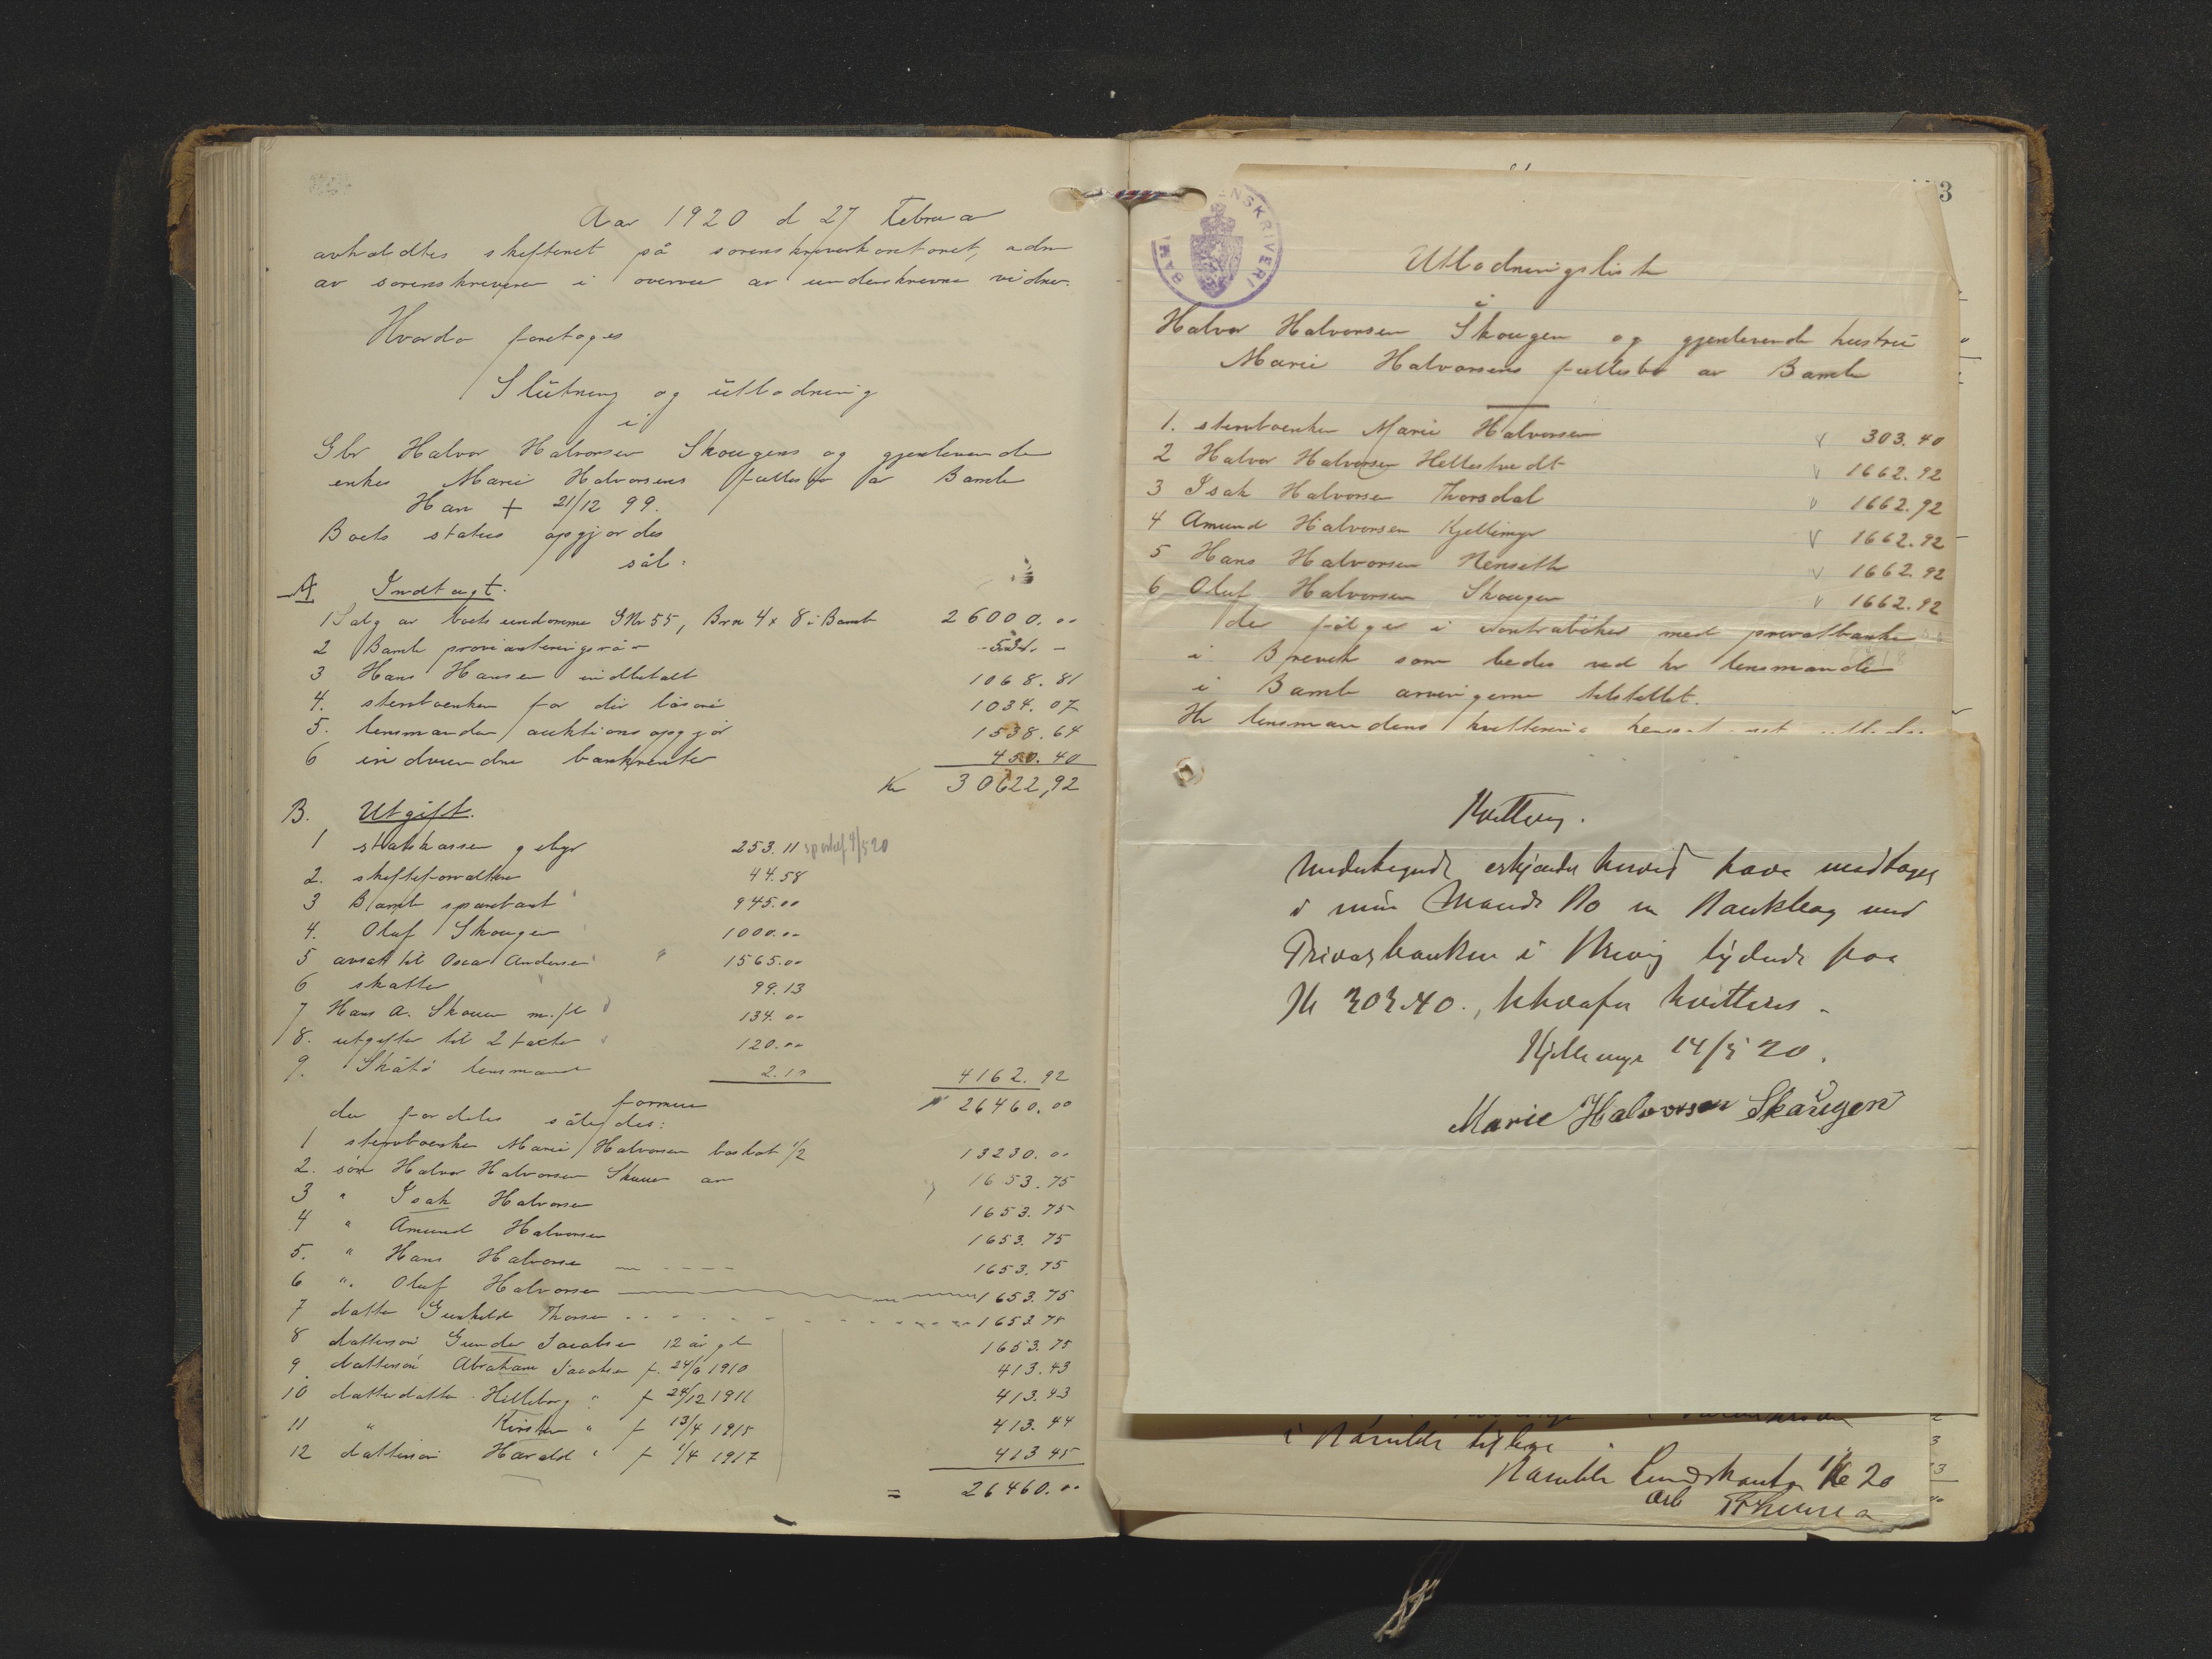 Aar 1920 d 27 februar
avholdtes skifteret på sorenskriverkontoret, adm
av sorenskriveren i overvær av underskrevne vidner.
Hvorda foretoges
Slutning og utlodning
i
Gbr Halvor Halvorsen Skougens og gjenlevende
enkes Marie Halvorsens fællesbo av Bamle
Han + 21/12 99.
Boets status opgjordes
sål:
A Indtægt.
1 Salg av boets eiendomme GNr 55, Brn 4 x 8 i Bamle 26000.00
2 Bamle provianteringsråd
3 Hans Hansen indbetalt 1068.81
4. stervboenken for div løsøre 1034.07
5. lensmanden auktionsopgjør 1538.64
6 indvundne bankrenter 450.40
Kr 30622,92
B. Utgift.
1 statskassen gebyr 253.11
2. skifteforvalteren 44.58
3 Bamle sparebank 945.00
4. Oluf Skougen 1000.00
5 avsat til Oscar Andersen " 1565.00
6 skatter 99.13
7 Hans A. Skouen m.fl 134.00
8. utgifter til 2 takter 120.00
9. Skåtø lensmand 2.10 4162.92
formue 26460.00
der fordeles således:
1 stervboenken Marie Halvorsen boslot 1/2 13230.00
2. søn Halvor Halvorsen Skouen arv 1653.75
3 " Isak Halvorsen 1653.75
4 " Amund Halvorsen 1653.75
5. " Hans Halvorsen 1653.75
6 " Oluf Halvorsen 1653.75
7 datter Gunhild Thorsen 1653.75
8 dattersøn Gunder Jacobsen 12 år gl 1653.75
9 dattersøn Abraham Jacobsen f. 24/6 1910 413.43
10 datterdatter Hilleborg " f 24/12 1911 413.43
11 " Kirsten " f 13/4 1915 413.44
12 dattersøn Harald " f 1/4 1917 413.45
= 26460.00
3
Utlodningsliste
i
Halvor Halvorsen Skougen og gjenlevende hustru
Marie Halvorsens fællesbo av Bamle
1. stervboenken Marie Halvorsen 303.40
2 Halvor Halvorsen Hellestvedt 1662.92
3 Isak Halvorsen Thorsdal 1662.92
4 Amund Halvorsen Kjellemyr 1662.92
5 Hans Halvorsen Nenseth 1662.92
6 Oluf Halvorsen Skougen 1662.92
der følger i kontrabøker med privatbanken
i Brevik som bedes ved hr lensmanden
i Bamle arvingerne tilstillet.
Hr lensmandens kvittering
Kvittering.
Undertegnede erkjender herved have modtaget
i min Mands Bo en Bankbog med
Privatbanken i Brevig lydende paa
Kr 303.40., hvorfor kvitteres.
Kjellemyr 14/5 20.
Marie Halvorsen Skaugen
i Bamble
Bamble Lensmandskontor 20